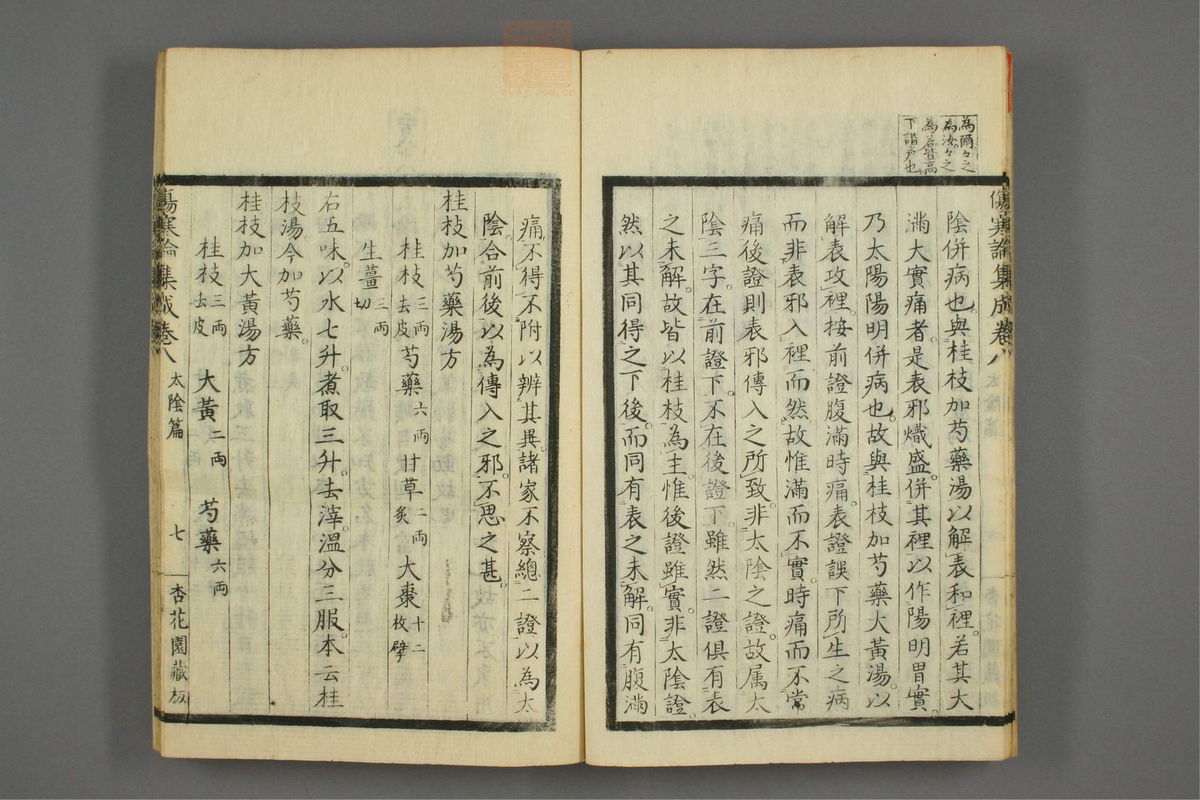 為爾々之
為汝々之
為若皆高
下諧声也
傷寒論集成卷八
陰併病也與桂枝加芍藥湯以解表和裡若其大
滿大實痛者是表邪熾盛併其裡以作陽明胃實
乃太陽陽明併病也故與桂枝加芍藥大黃湯以
解表攻裡按前證腹滿時痛表證誤下所生之病
而非表邪入裡而然故惟滿而不實時痛而不常
痛後證則表邪傳入之所致非太陰之證故属太
陰三字在前證下不在後證下雖然二證俱有表
之未解故皆以桂枝為主惟後證雖實非太陰證
然以其同得之下後而同有表之未解同有腹滿
痛不得不附以辨其異諸家不察總二證以為太
陰合前後以為傳入之邪不思之甚
桂枝加芍藥湯方
桂枝三両去皮 芍藥六両 甘草二両炙 大棗十二枚擘
生薑三両切
右五味以水七升煮取三升去滓溫分三服本云桂
枝湯今加芍藥
桂枝加大黃湯方
桂枝三両去皮 大黃二両 芍藥六両
傷寒論集成卷八 太陰篇 七 杏花園藏板